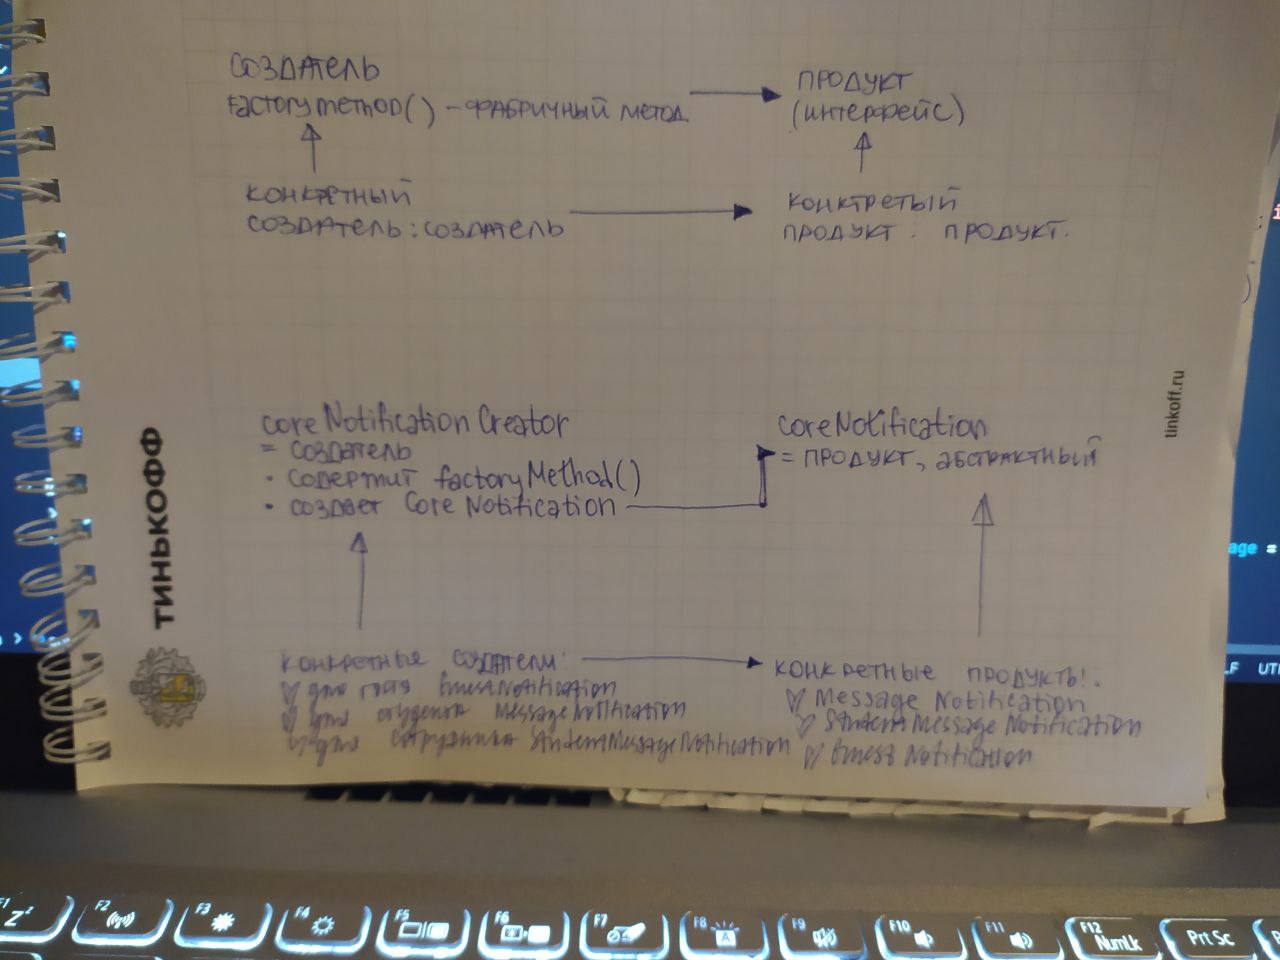 СОЗДАТЕЛЬ
Factorymethod() – ФАБРИЧНЫЙ МЕТОД
ПРОДУКТ
(ИНТЕРФЕЙС)
КОНКРЕТНЫЙ
СОЗДАТЕЛЬ: СОЗДАТЕЛЬ
КОНКТРЕТЫЙ
ПРОДУКТ: ПРОДУКТ.
coreNotificationCreator
= СОЗДАТЕЛЬ
· СОДЕРЖИТ factoryMethod()
· СОЗДАЕТ CoreNotification
coreNotification
= ПРОДУКТ, АБСТРАКТНЫЙ
КОНКРЕТНЫЕ СОЗДАТЕЛИ:
для гостя GuestNotification
для студента MessageNotification
для сотрудника StudentMessageNotification
КОНКРЕТНЫЕ ПРОДУКТЫ:
Message Notification
StudentMessageNotification
GuestNotification
ТИНЬКОФФ
tinkoff.ru
age =
LF UT
F1 Zz
F2
F3
F4
F5
F6
F7
F8 A
F9
F10
F11
F12 NumLk
Prt Sc